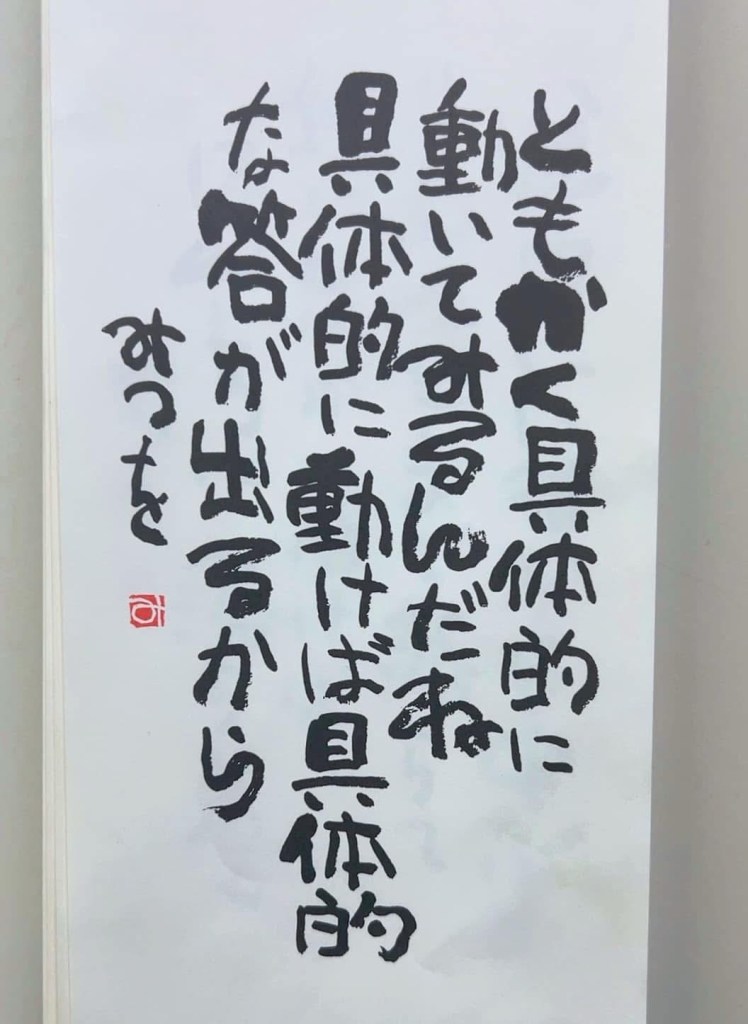 ともかく具体的に
動いてみるんだね
具体的に動けば具体的
な答が出るから
みつを